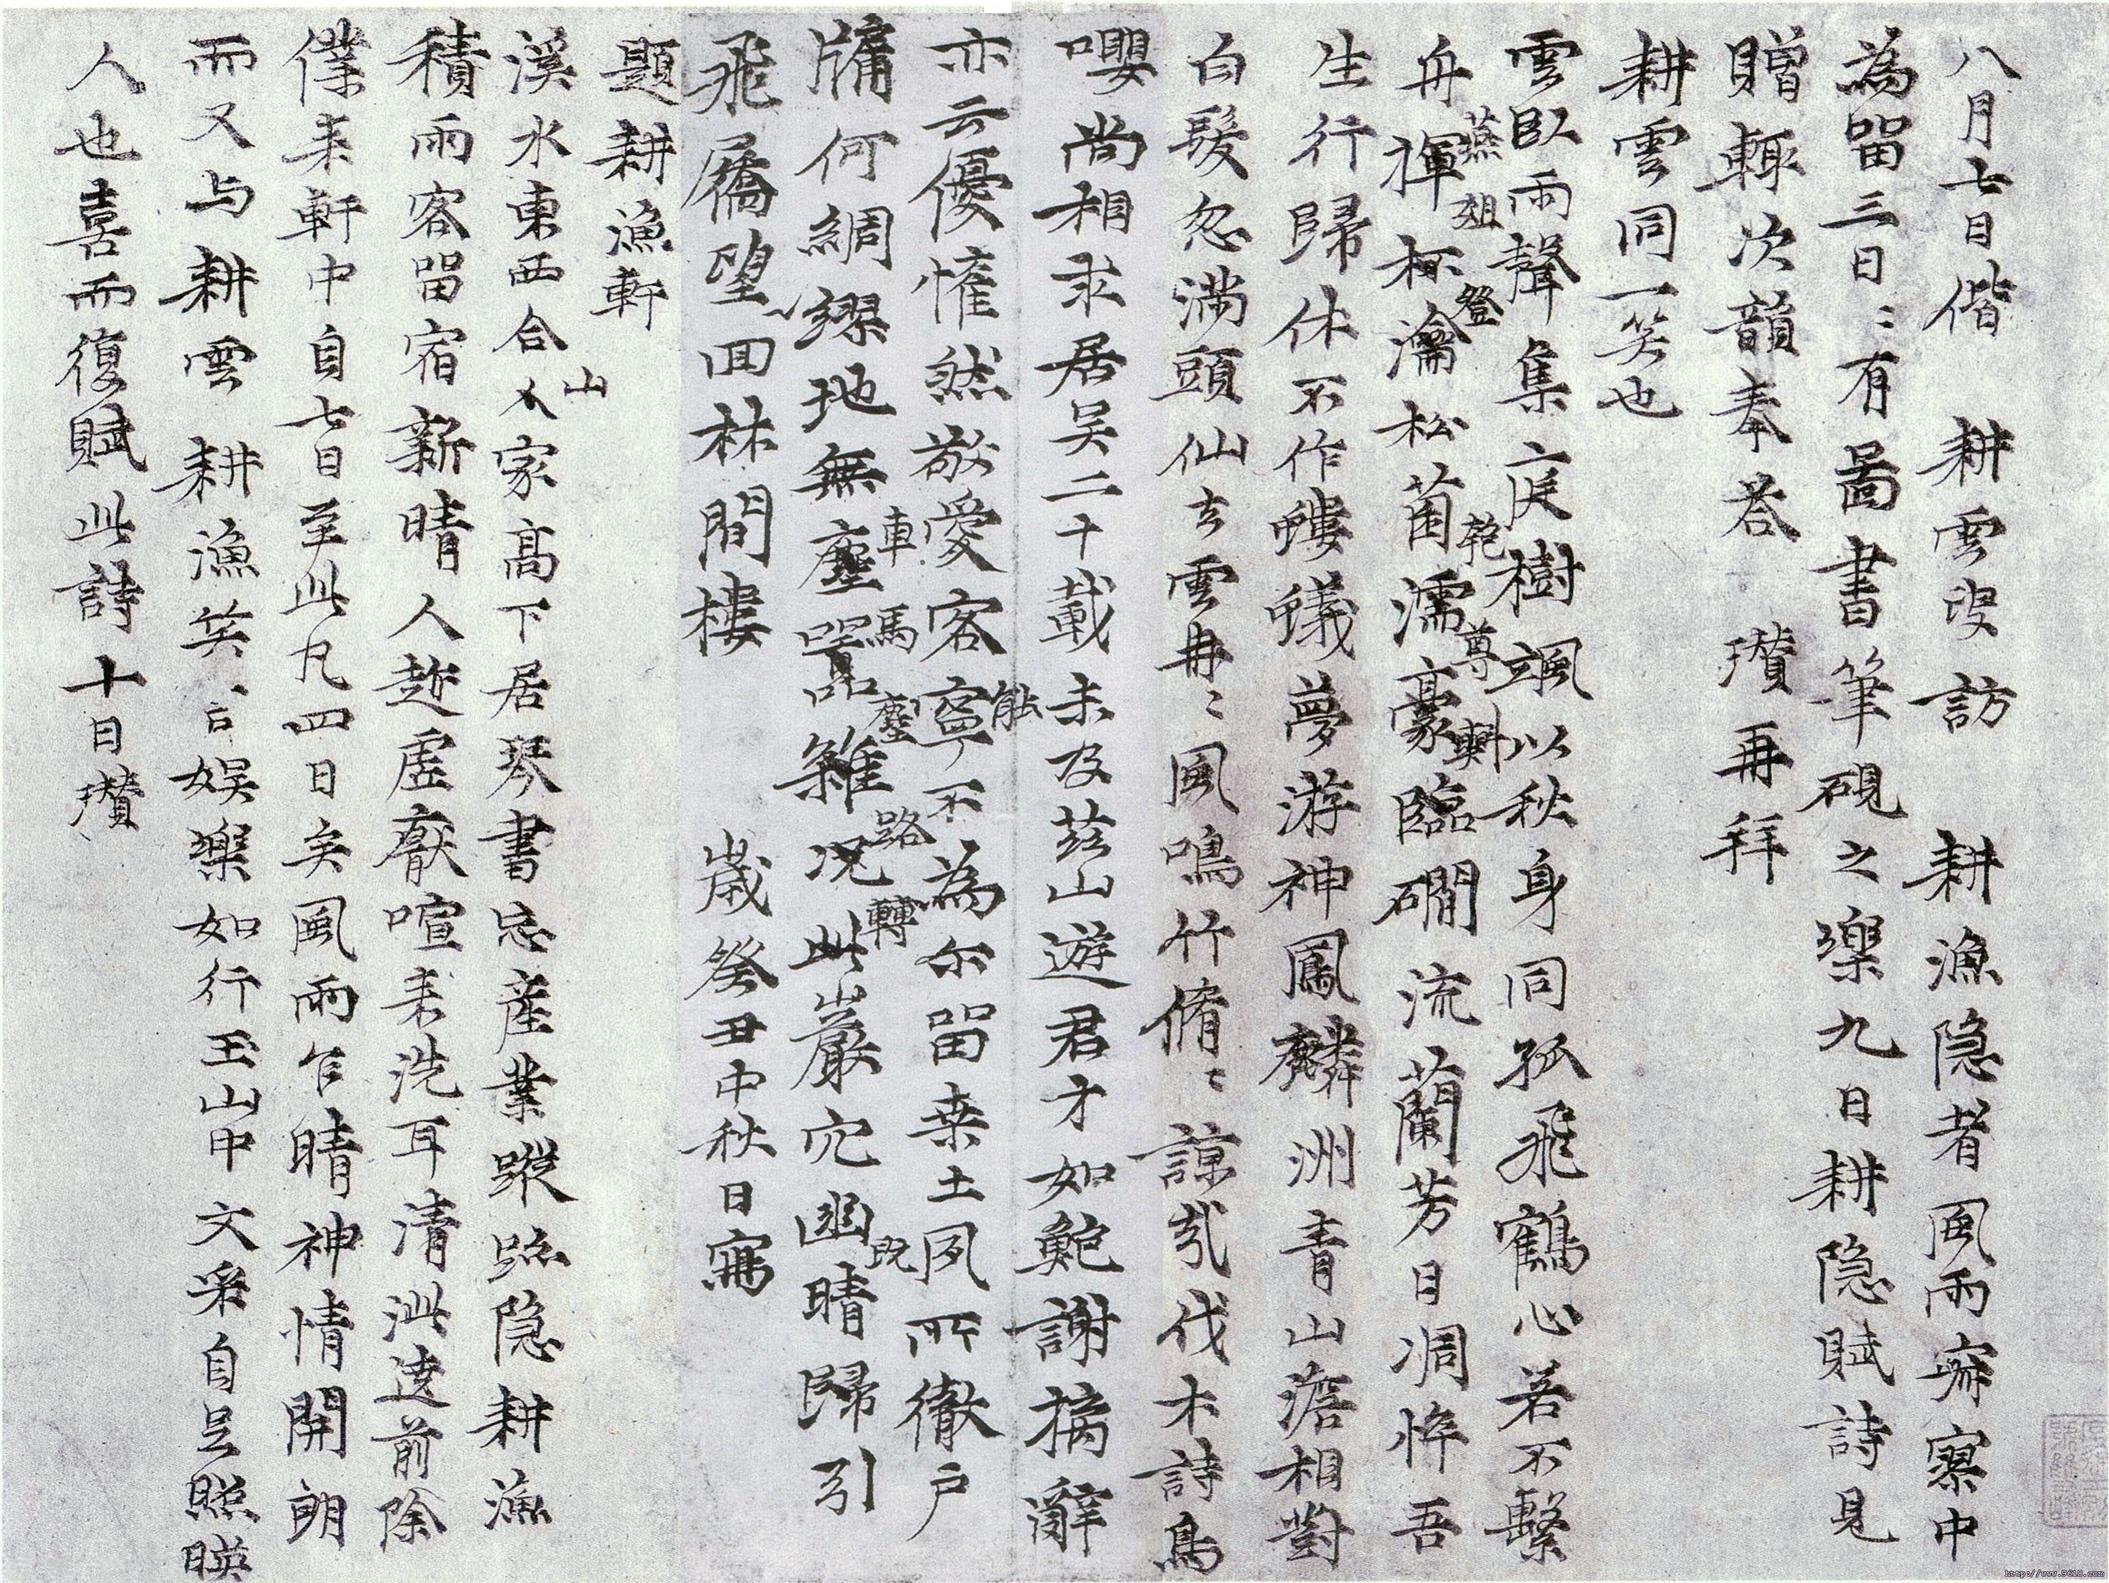 八月七日偕　耕雲叟訪　耕漁隐者風雨寂寥中
為留三日〻有啚書筆硯之樂九日耕隐賦詩見
贈輙次韻奉荅　瓚再拜
耕雲同一笑也
雲臥雨聲集庭樹颯以秋身同孤飛鶴心若不繫
舟揮杯瀹松菌濡豪臨磵流蘭芳日凋悴吾
燕俎登 乾尊輿
生行歸休不作螻蟻夢游神鳳麟洲青山澹相對
白髮忽滿頭仙去雲冉〻風鳴竹脩〻諒哉伐木詩鳥
嚶尚相求居吴二十載未及茲山遊君才如鮑謝摛辭
亦云優惟然敬愛客寧不為尓留桑土夙所徹戶
能
牖何綢繆地無塵嚣雜况此巖穴幽晴歸引
車馬塵路轉 既
飛屩望回林間樓　歲癸丑中秋日寫
題耕漁軒
溪水東西合人家高下居琴書忘產業蹤跡隐耕漁
山
積雨客留宿新晴人趂虛厭喧来洗耳清泚遶前除
僕来軒中自七日至此凡四日矣風雨乍晴神情開朗
而又与耕雲　耕漁笑言娛樂如行玉山中文采自足照暎
人也喜而復賦此詩十日瓚
http://www.9610.com